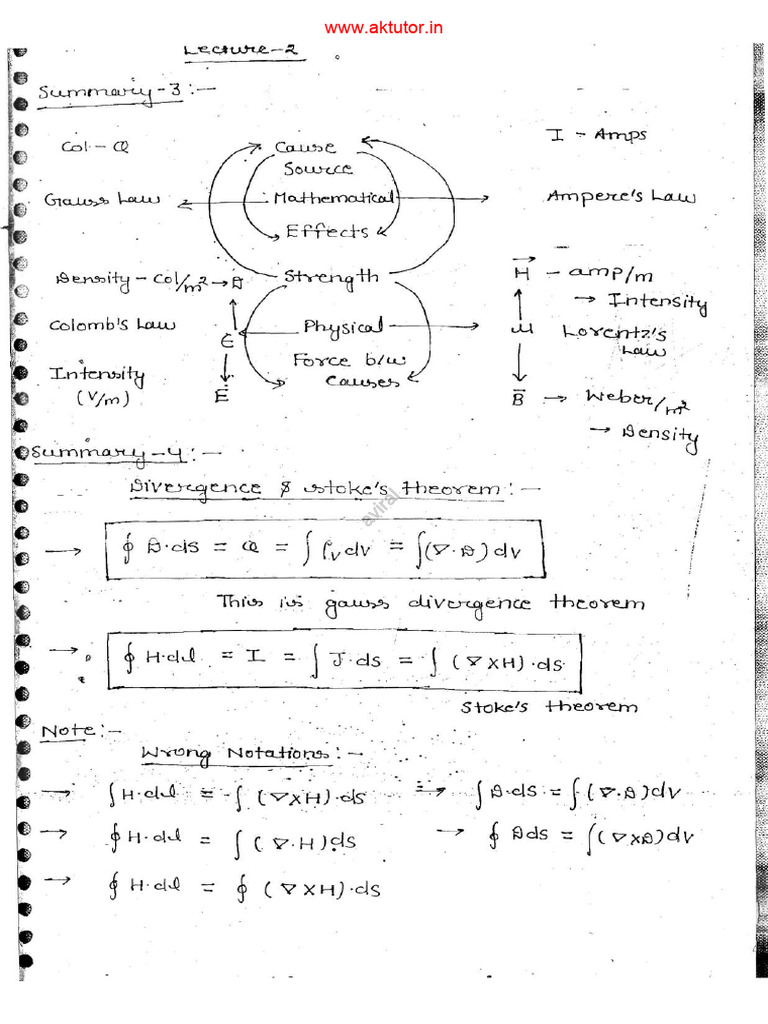 www.aktutor.in
Lecture-2
Summary-3:-
Col - Q
Cause
Source
I - Amps
Gauss Law
Mathematical
Ampere's Law
Effects
Density - Col/m² → D
Strength
H - amp/m
→ Intensity
Colomb's Law
Є
Physical
μ
Lorentz's
Law
Intensity
(V/m)
E
Force b/w
Causes
B → Weber/m²
→ Density
Summary-4:-
Divergence & stoke's theorem:-
→ ∮ D·ds = Q = ∫ ρv dv = ∫(∇·D) dv
This is gauss divergence theorem
→ ∮ H·dl = I = ∫ J·ds = ∫ (∇XH)·ds
Stoke's theorem
Note:-
Wrong Notations:-
→ ∫H·dl = ∫ (∇XH)·ds → ∫D·ds = ∫(∇·D)dv
→ ∮H·dl = ∫ (∇·H)ds → ∮ Dds = ∫(∇XD)dv
→ ∮ H·dl = ∮ (∇XH)·ds
aviral